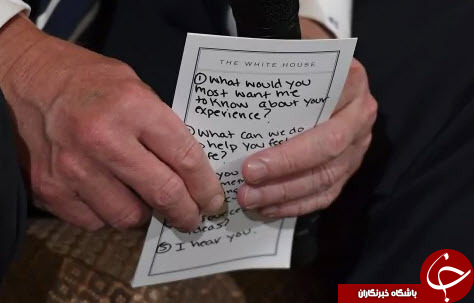 THE WHITE HOUSE
① What would you
most want me
to know about your
experience?
What can we do
help you feel
you
ideas?
⑤ I hear you.
باشگاه خبرنگاران